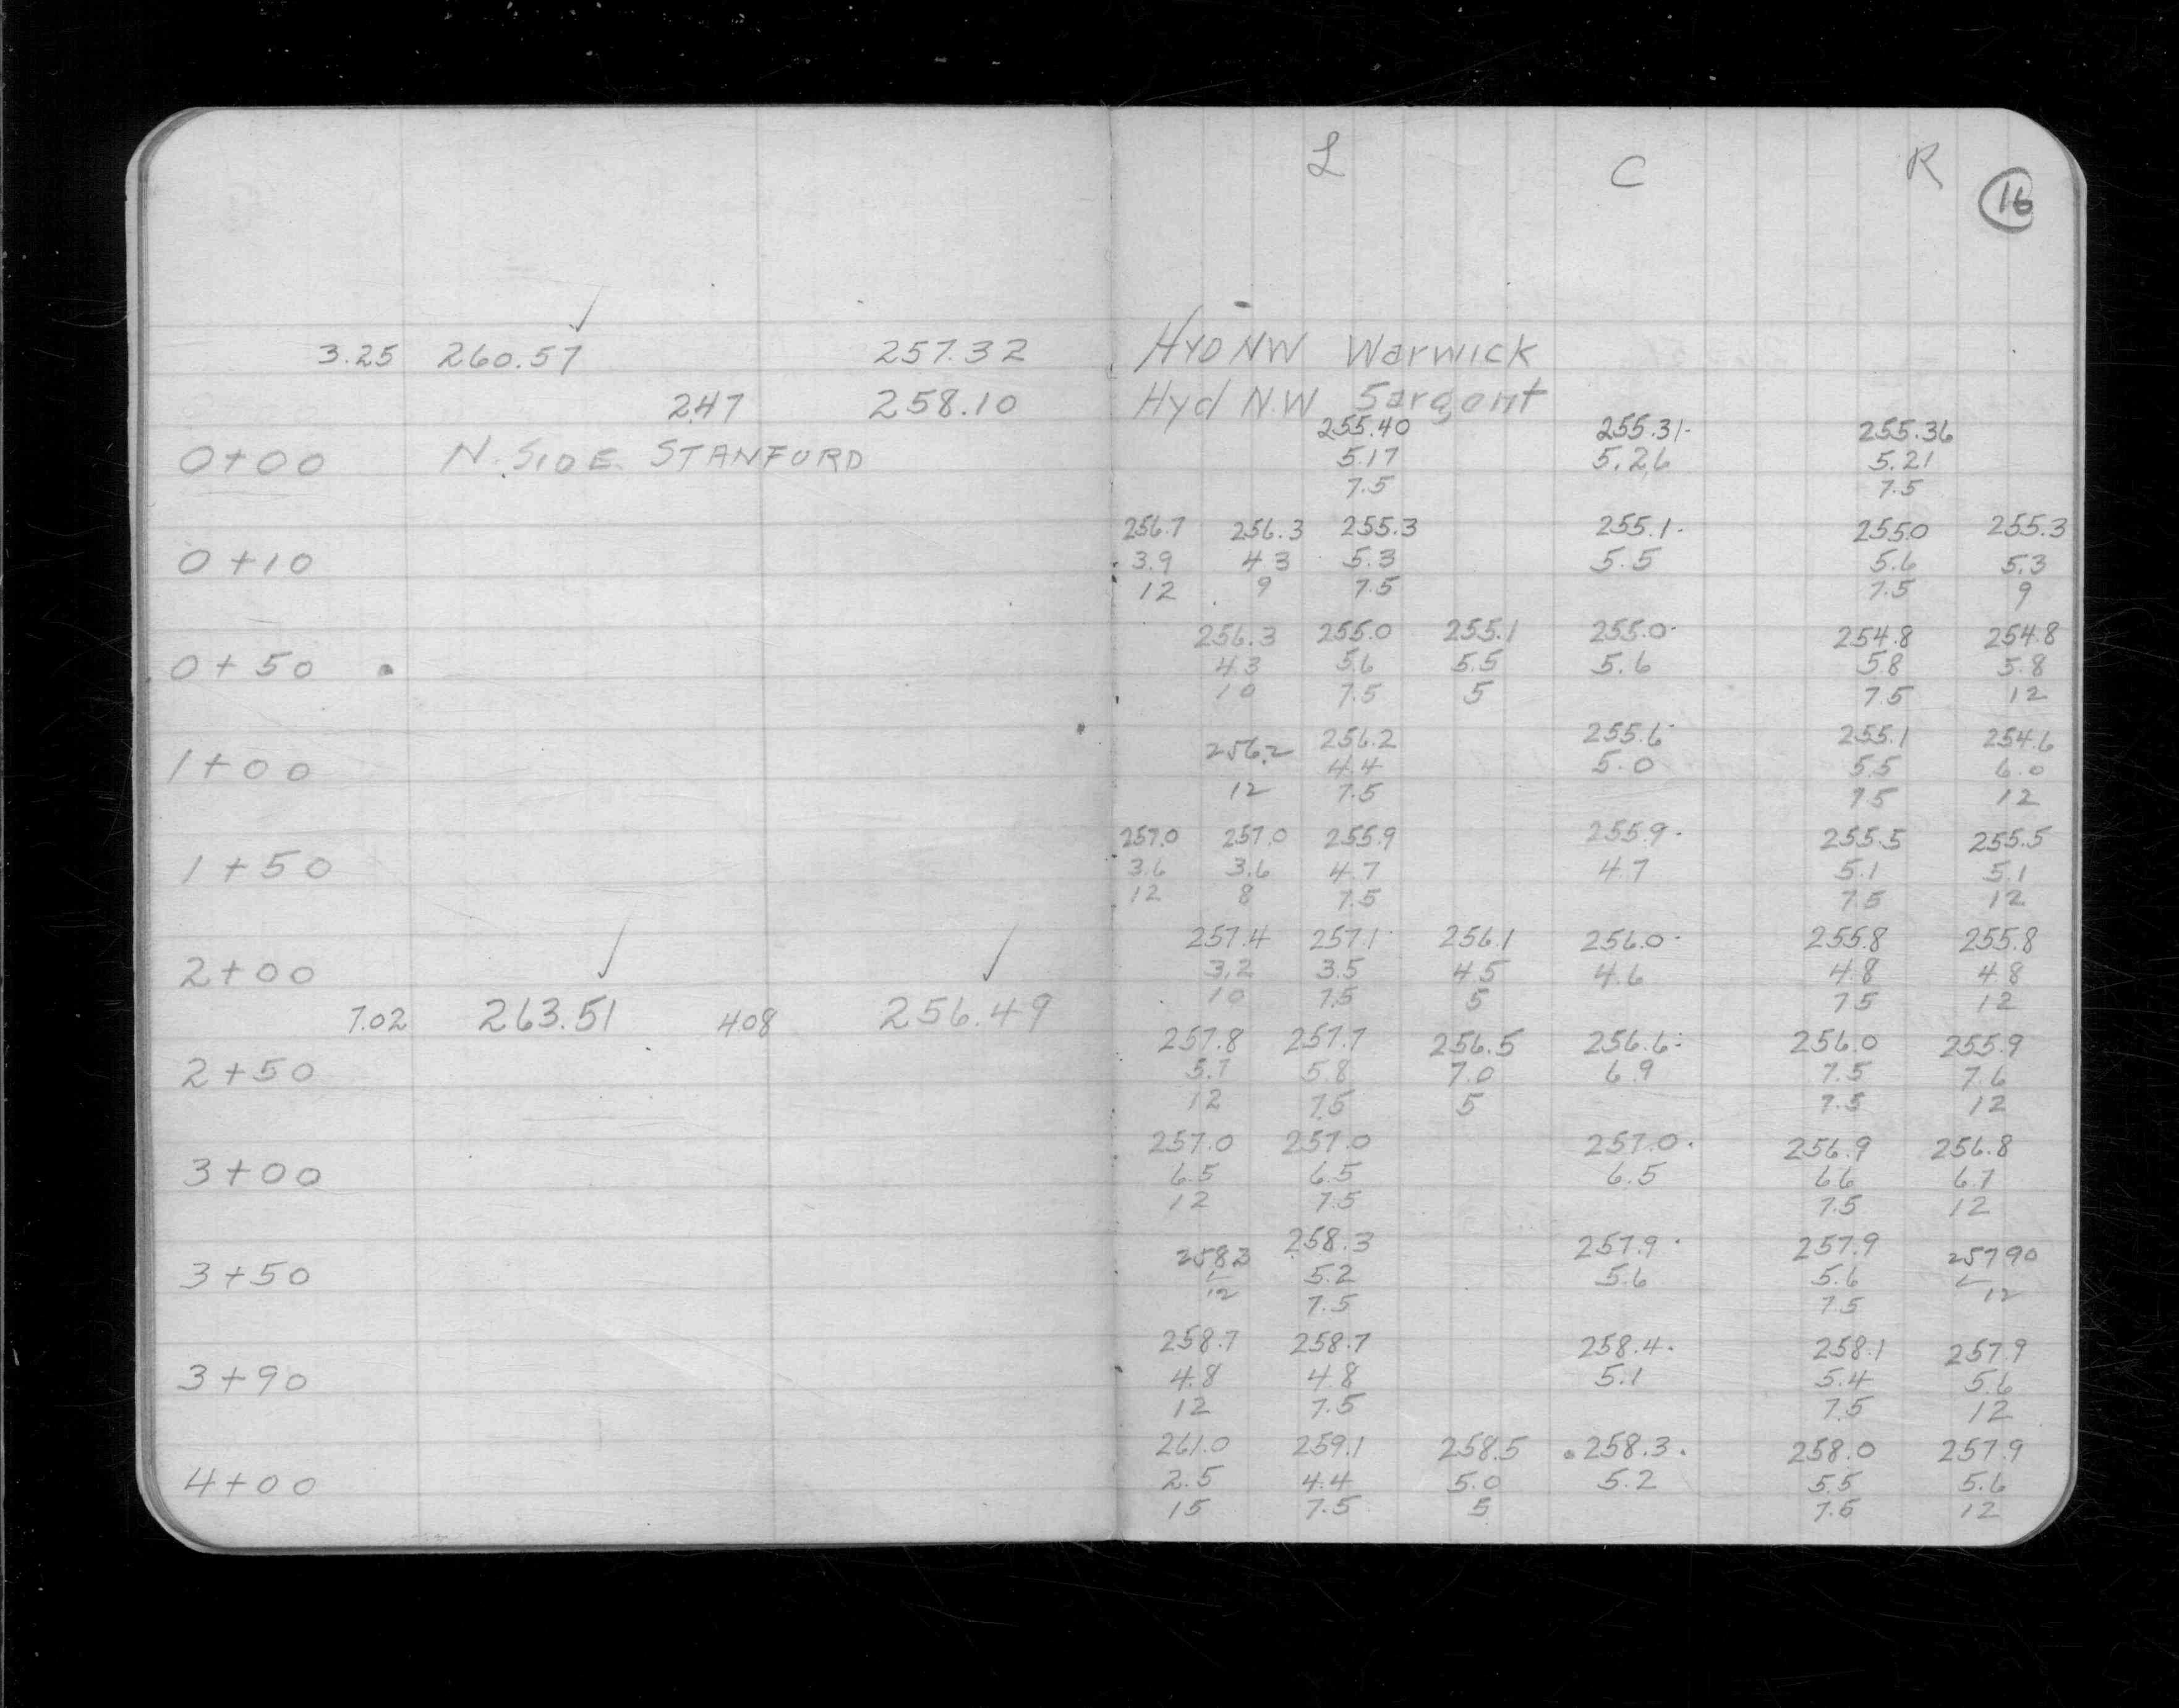 L C R
16
3.25 260.57 257.32 HYD NW Warwick
2.47 258.10 Hyd N.W Sargent
255.40 255.31 255.36
0+00 N. SIDE STANFORD 5.17 5.26 5.21
7.5 7.5
256.7 256.3 255.3 255.1 255.0 255.3
0+10 3.9 4.3 5.3 5.5 5.6 5.3
12 9 7.5 7.5 9
256.3 255.0 255.1 255.0 254.8 254.8
0+50 4.3 5.6 5.5 5.6 5.8 5.8
10 7.5 5 7.5 12
256.2 256.2 255.6 255.1 254.6
1+00 4.4 5.0 5.5 6.0
12 7.5 7.5 12
257.0 257.0 255.9 255.9 255.5 255.5
1+50 3.6 3.6 4.7 4.7 5.1 5.1
12 8 7.5 7.5 12
257.4 257.1 256.1 256.0 255.8 255.8
2+00 3.2 3.5 4.5 4.6 4.8 4.8
10 7.5 5 7.5 12
7.02 263.51 4.08 256.49
257.8 257.7 256.5 256.6 256.0 255.9
2+50 5.7 5.8 7.0 6.9 7.5 7.6
12 7.5 5 7.5 12
257.0 257.0 257.0 256.9 256.8
3+00 6.5 6.5 6.5 6.6 6.7
12 7.5 7.5 12
258.3 258.3 257.9 257.9 257.90
3+50 5.2 5.6 5.6
12 7.5 7.5 12
258.7 258.7 258.4 258.1 257.9
3+90 4.8 4.8 5.1 5.4 5.6
12 7.5 7.5 12
261.0 259.1 258.5 258.3 258.0 257.9
4+00 2.5 4.4 5.0 5.2 5.5 5.6
15 7.5 5 7.5 12